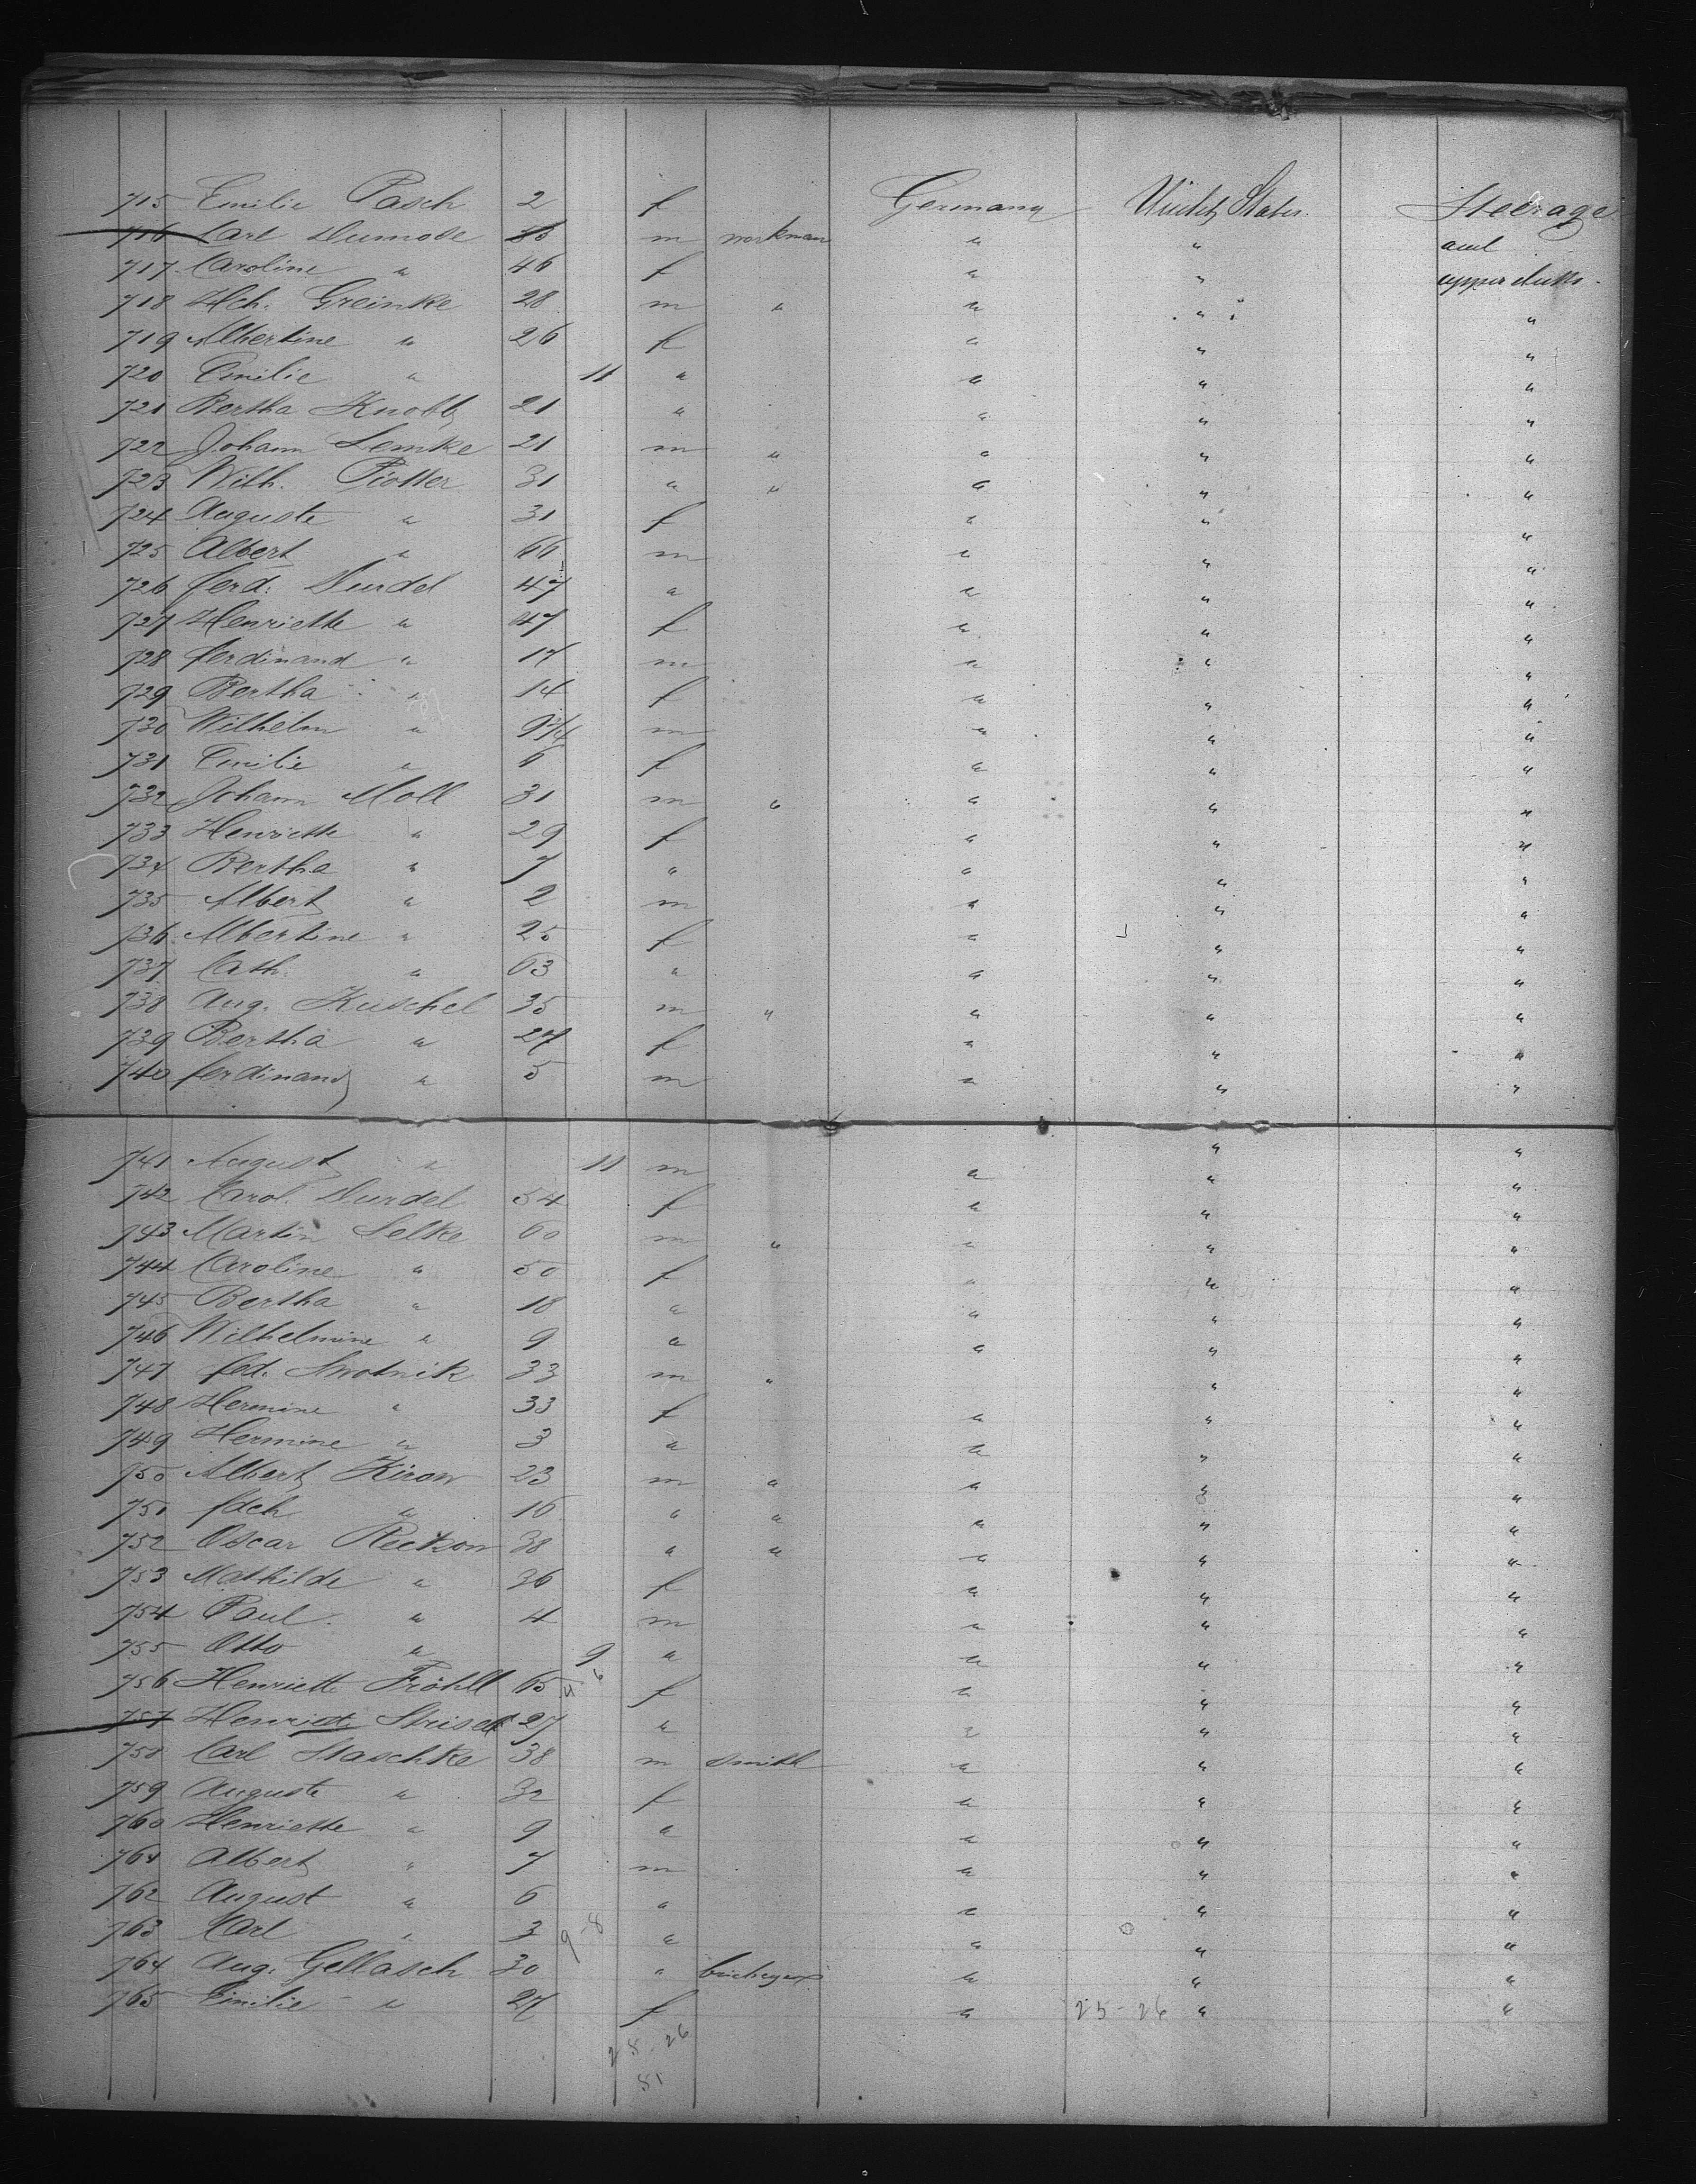 715 Emilie Pasch 2 f Germany United States Steerage
716 Carl m workman " " and
717 Caroline " 46 f " " upper decks
718 Hch. Greinke 28 m " " " "
719 Albertine " 26 f " " "
720 Emilie " 11 " " " "
721 Bertha Knobb 21 " " " "
722 Johann Lemke 21 m " " " "
723 Wilh. Piotter 31 " " " " "
724 Auguste " 31 f " " "
725 Albert " 66 m " " "
726 ferd. Durdel 47 " " " "
727 Henriette " 47 f " " "
728 ferdinand " 17 m " " "
729 Bertha " 14 f " " "
730 Wilhelm " m " " "
731 Emilie " 6 f " " "
732 Johann Moll 31 m " " " "
733 Henriette " 29 f " " "
734 Bertha " 7 " " " "
735 Albert " 2 m " " "
736 Albertine " 25 f " " "
737 Cath. " 63 " " " "
738 Aug. Kuschel 35 m " " " "
739 Bertha " 27 f " " "
740 ferdinand " 5 m " " "
741 August " 11 m " " "
742 Carol. Durdel 54 f " " "
743 Martin Selke 60 m " " " "
744 Caroline " 50 f " " "
745 Bertha " 18 " " " "
746 Wilhelmine " 9 " " " "
747 fed. Smotnik 33 m " " "
748 Hermine " 33 f " " "
749 Hermine " 3 " " " "
750 Albert Kirow 23 m " " " "
751 fdch " 16 " " " " "
752 Oscar Reckow 38 " " " " "
753 Mathilde " 36 f " " "
754 Paul " 4 m " " "
755 Otto " 9 " " " "
756 Henriette Fröhll 65 f " " "
757 Henriette 27 " " " "
758 Carl Staschke 38 m smith " " "
759 Auguste " 32 f " " "
760 Henriette " 9 " " " "
761 Albert " 7 m " " "
762 August " 6 " " " "
763 Carl " 3 9-8 " " " "
764 Aug. Gellasch 30 " " " "
765 Emilie " 27 f " 25-26 " "
25-26
51